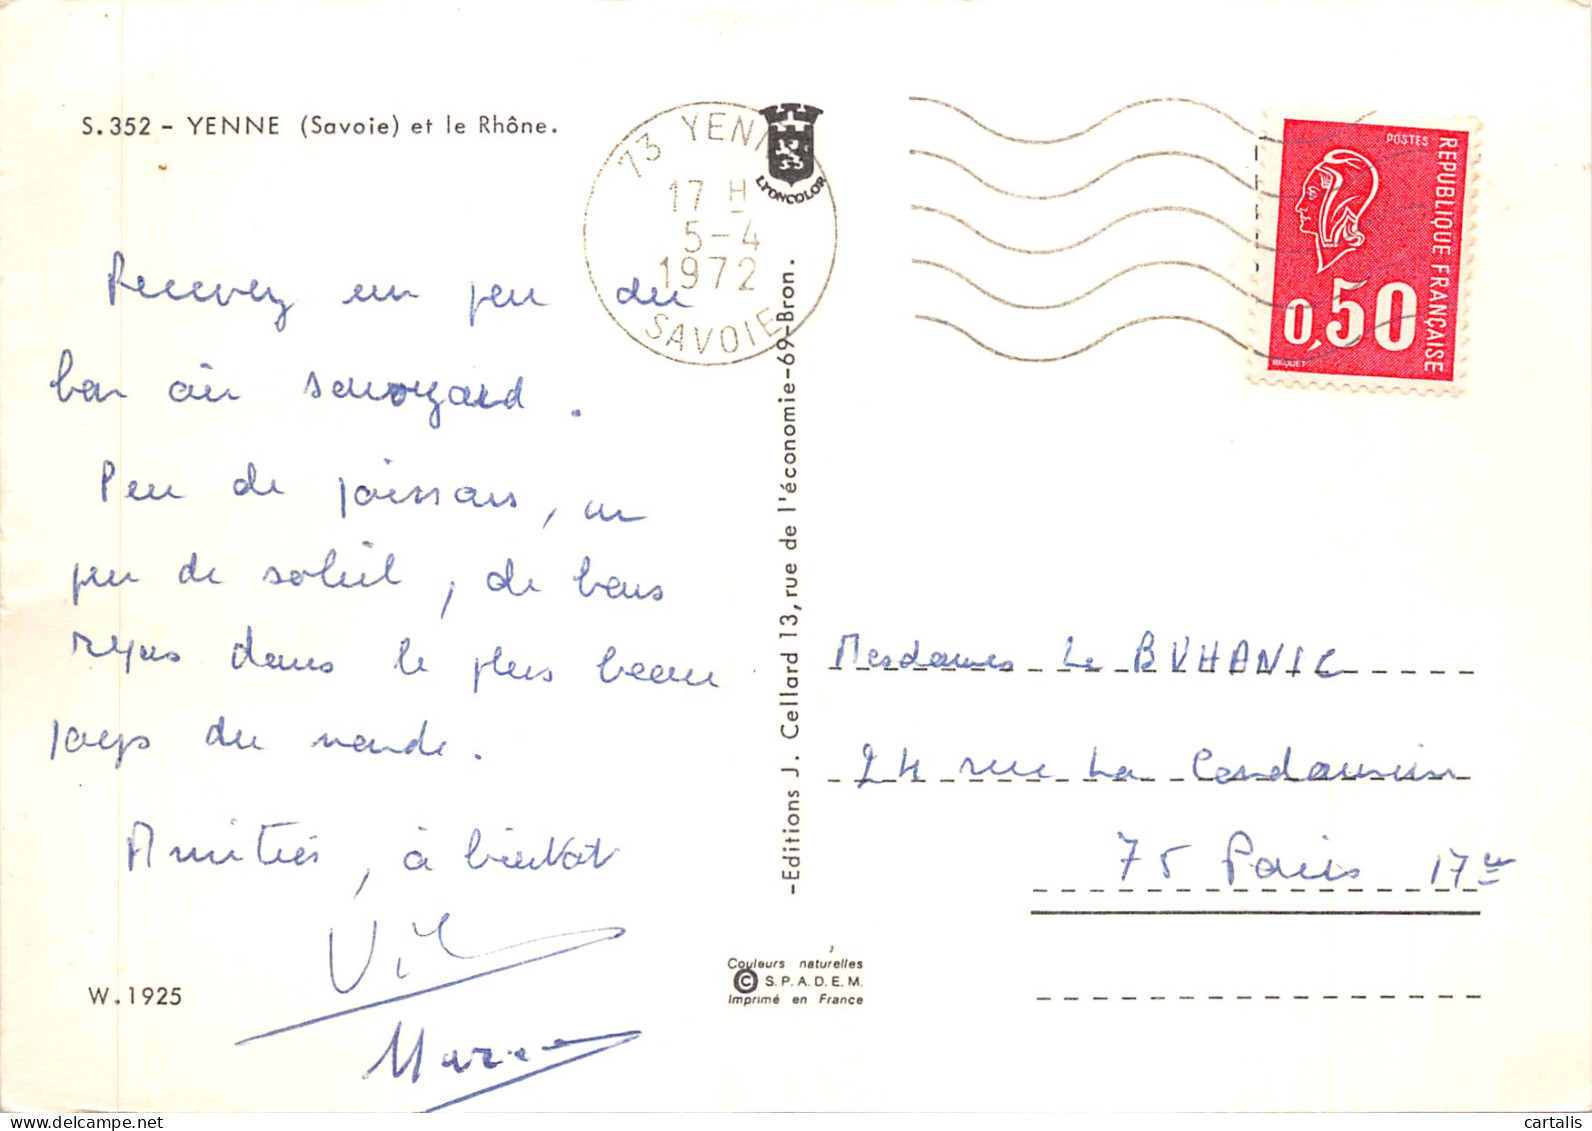 S.352 - YENNE (Savoie) et le Rhône.
73 YENNE
17 H
5-4
1972
SAVOIE
LYONCOLOR
POSTES
REPUBLIQUE FRANÇAISE
0,50
BEQUET
Recevez un peu du
bon air savoyard.
Peu de poissons, un
peu de soleil, de bons
repas dans le plus beau
pays du monde.
Amitiés, à bientôt
W.1925
-Editions J. Cellard 13, rue de l'économie-69-Bron.
Mesdames Le BUHANIC
24 rue La Condamine
75 Paris 17e
Couleurs naturelles
© S.P.A.D.E.M.
Imprimé en France
delcampe.net
cartalis